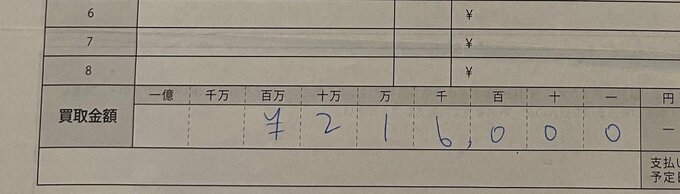 6 ¥
7 ¥
8 ¥
一億 千万 百万 十万 万 千 百 十 一 円
買取金額 ¥ 2 1 6,0 0 0 ー
支払い
予定日